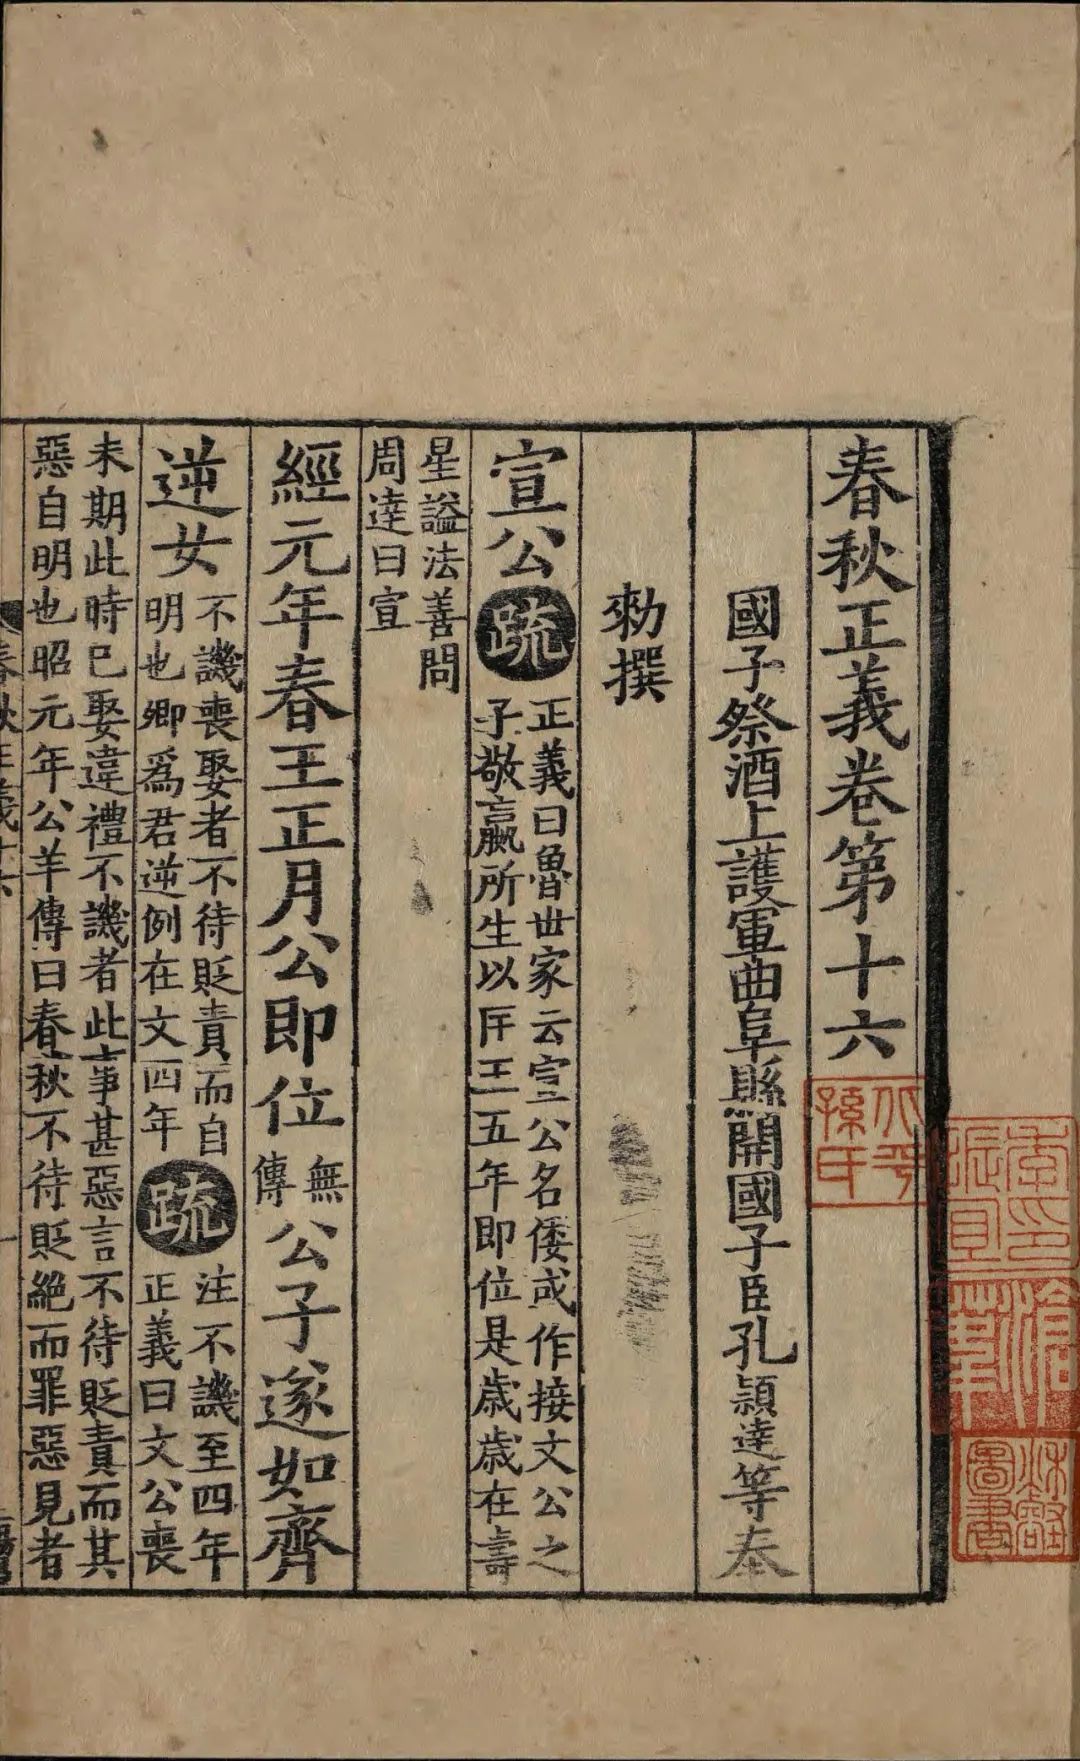 春秋正義卷第十六
國子祭酒上護軍曲阜縣開國子臣孔穎達等奉
勑撰
宣公疏
正義曰魯世家云宣公名倭或作接文公之
子敬嬴所生以匡王五年即位是歲歲在壽
星謚法善問
周達曰宣
經元年春王正月公即位
無
傳
公子遂如齊
逆女
不譏喪娶者不待貶責而自
明也卿爲君逆例在文四年
疏
注不譏至四年
正義曰文公喪
未期此時已娶違禮不譏者此事甚惡言不待貶責而其
惡自明也昭元年公羊傳曰春秋不待貶絕而罪惡見者
春秋正義十六
一
北平
孫氏
秋壑
圖書